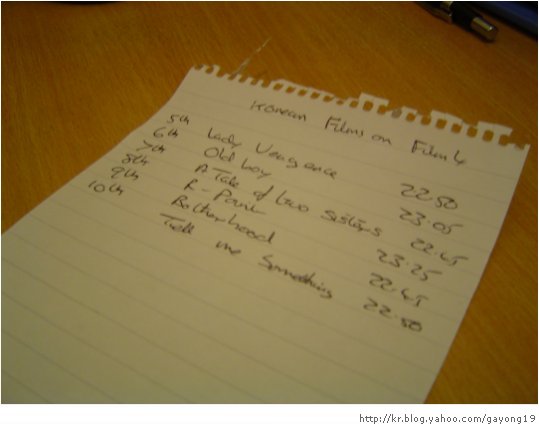 Korean Films on Film4
5th Lady Vengeance 22.50
6th Old boy 23.05
7th A Tale of two sisters 22.45
8th R-Point 23.25
9th Brotherhood 22.45
10th Tell me Something 22.50
http://kr.blog.yahoo.com/gayong19